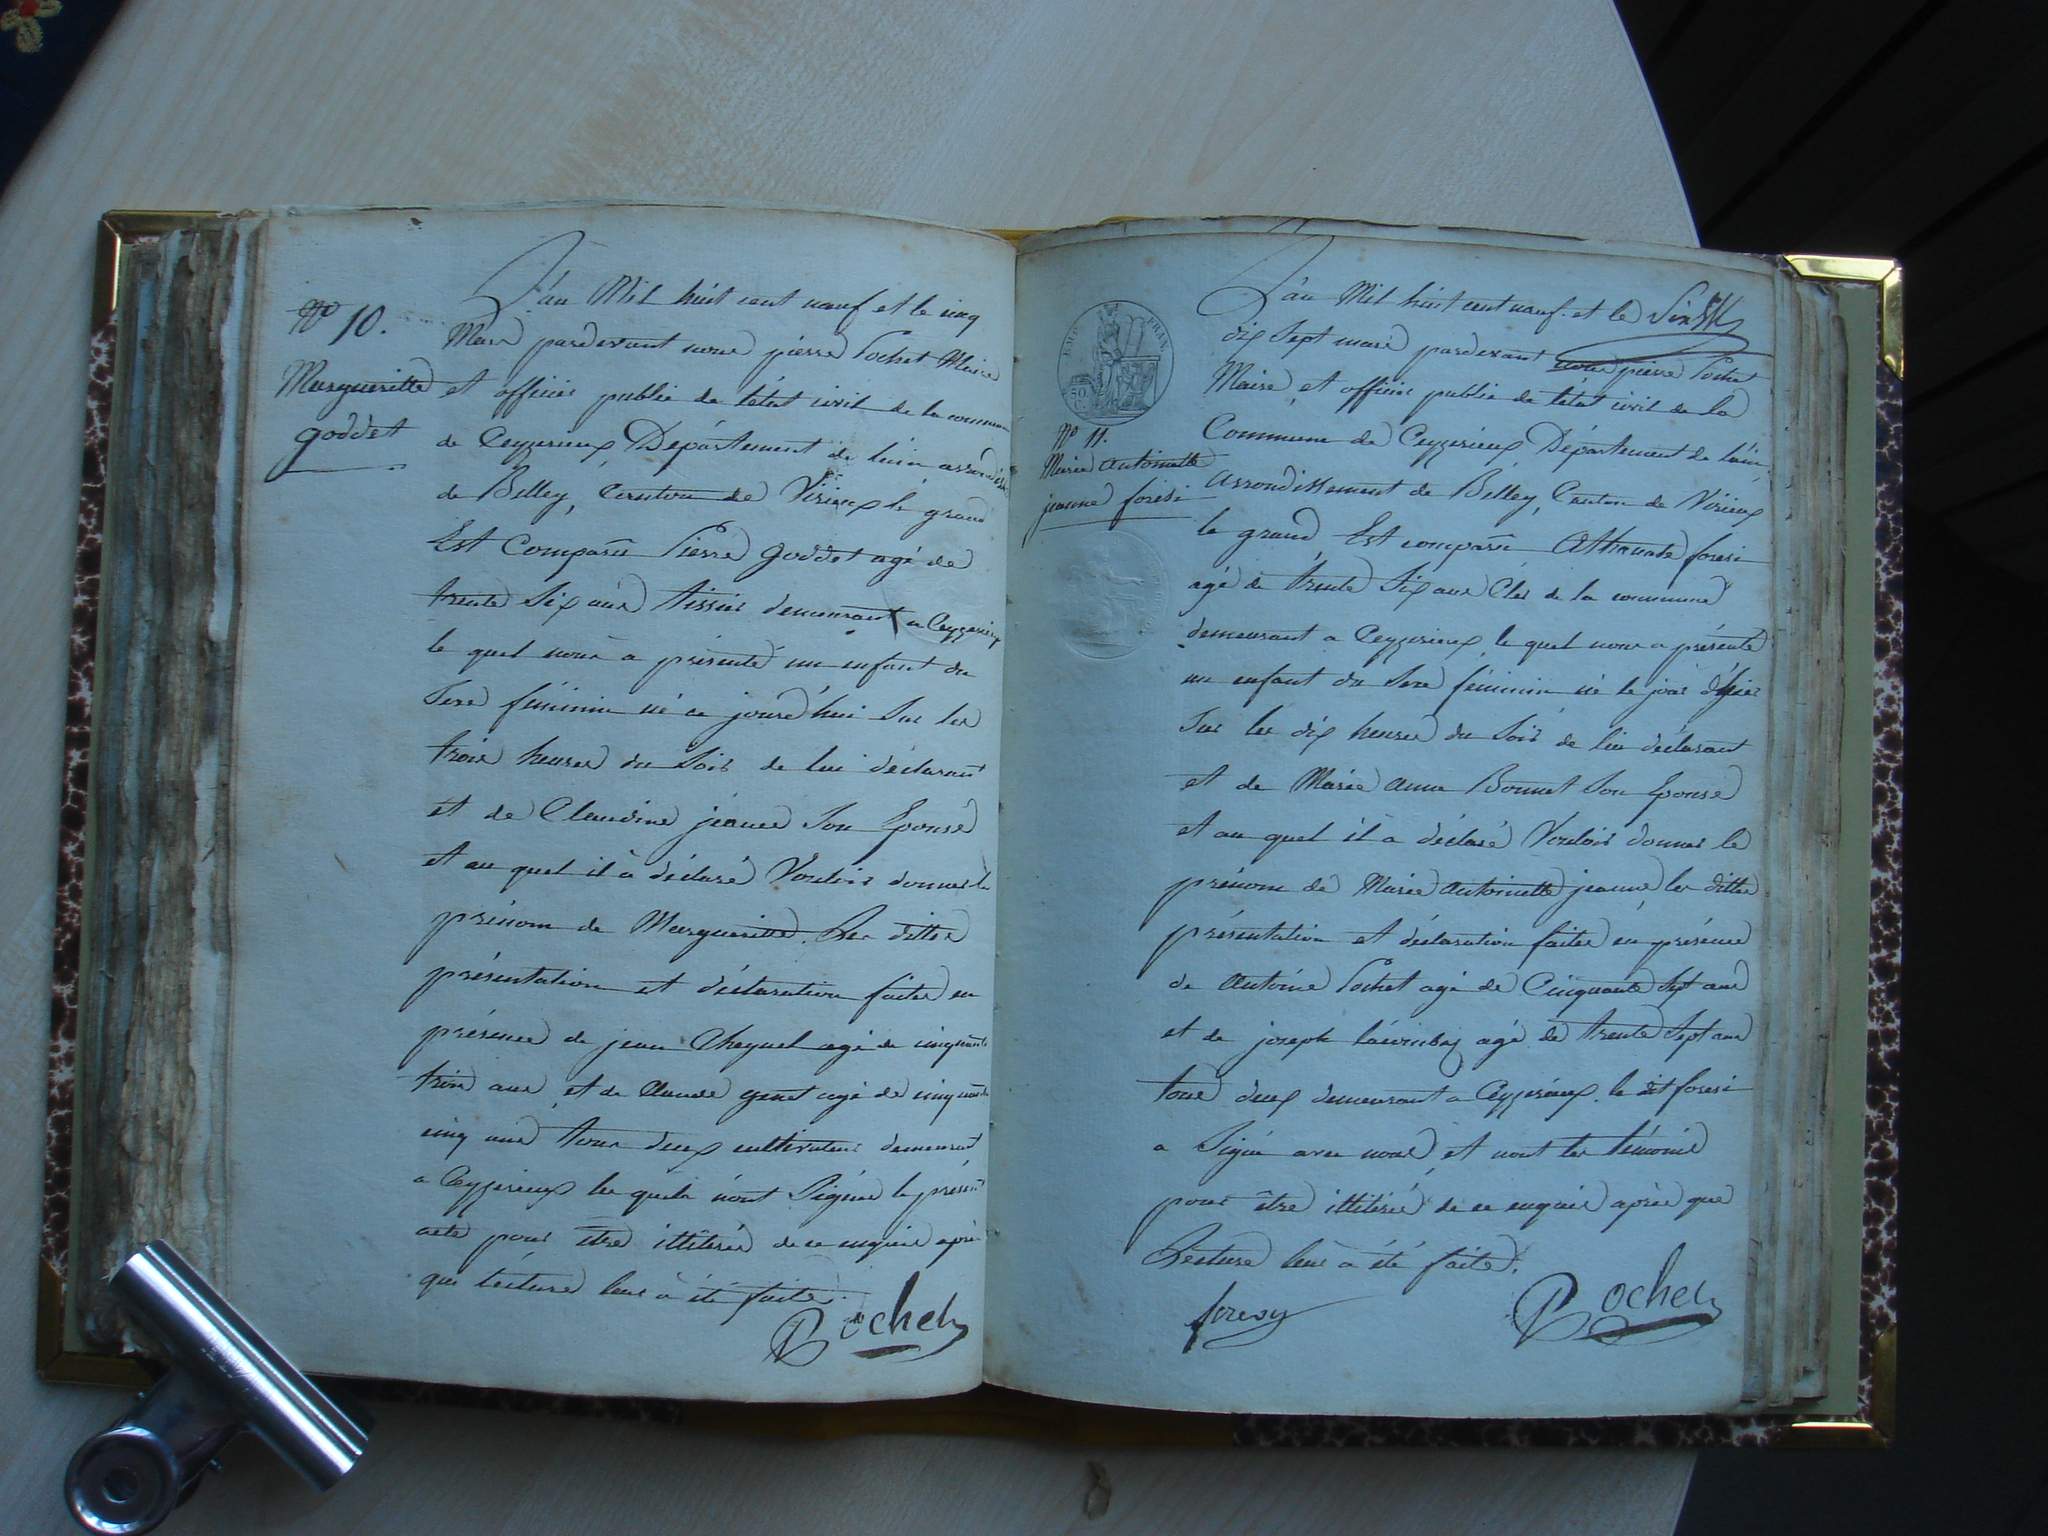 N° 10.
Margueritte
goddet
L'an Mil huit cent neuf et le cinq
Mars pardevant nous pierre Pochet Maire
et officier public de l'état civil de la commune
de Ceyzerieux Département de l'ain arrondist
de Belley, Canton de Virieux le grand
Est Comparu Pierre goddet agé de
trente Six ans tissier demeurant a Ceyzerieux
le quel nous a présenté un enfant du
Sexe féminin né ce jourd'hui Sur les
trois heures du Soir de lui déclarant
et de Claudine jeanne Son Epouse
et au quel il à déclaré Vouloir donner le
prénom de Margueritte, Les dittes
présentation et déclaration faites en
présence de jean Cheynel agé de cinquante
trois ans et de Claude genet agé de cinquante
cinq ans tous deux cultivateurs demeurant
a Ceyzerieux les quels n'ont Signés le présent
acte pour être illitérés de ce enquis après
que lecture leur à été faite.
Pochet
EMP. FRAN.
50
N° 11.
Marie antoinette
jeanne foresi
L'an Mil huit cent neuf et le
dix Sept mars pardevant nous pierre Pochet
Maire et officier public de l'état civil de la
Commune de Ceyzerieux Département de l'ain
arrondissement de Belley, Canton de Virieux
le grand Est comparu foresi
agé de trente Six ans de la commune
demeurant a Ceyzerieux le quel nous a présenté
un enfant du Sexe féminin né le jour d'hier
Sur les dix heures du Soir de lui déclarant
et de Marie anne Bonnet Son Epouse
et au quel il a déclaré Vouloir donner le
prénom de Marie antoinette jeanne, les dittes
présentation et déclaration faites en présence
de antoine Pochet agé de Cinquante Sept ans
et de joseph agé de trente Sept ans
tous deux demeurant a Ceyzerieux. le dit foresi
a Signé avec nous et nont les témoins
pour être illitérés de ce enquis après que
Lecture leur a été faite.
foresy Pochet